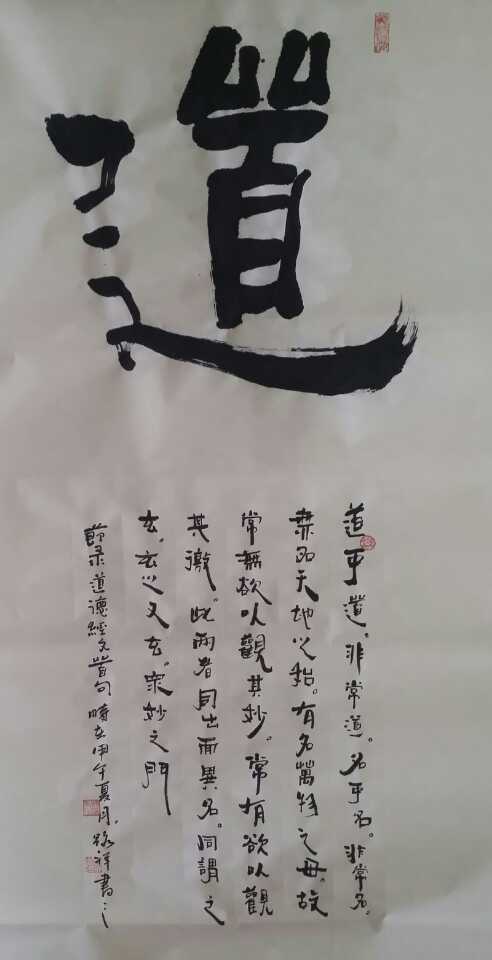 道
道可道。非常道。名可名。非常名。
無名天地之始。有名萬物之母。故
常無欲以觀其妙。常有欲以觀
其徼。此兩者同出而異名。同謂之
玄。玄之又玄。眾妙之門
節录道德經文首句時在甲午夏月。祥書